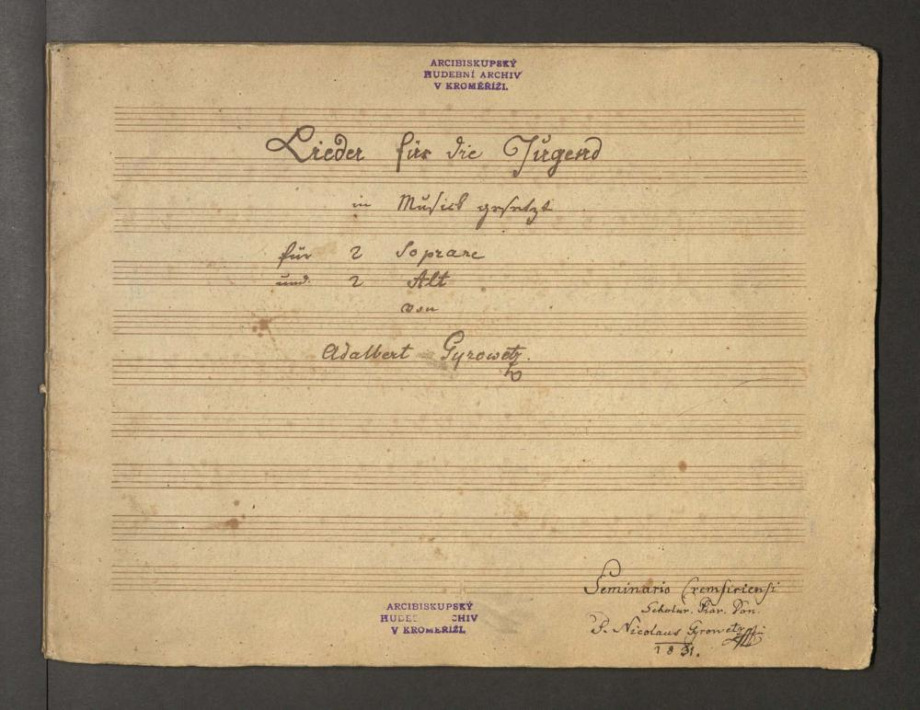 ARCIBISKUPSKÝ
HUDEBNÍ ARCHIV
V KROMĚŘÍŽI.
Lieder für die Jugend
in Musick gesetzt
für 2 Soprane
und 2 Alt
von
Adalbert Gyrowetz.
Seminario Cremsiriensi
Scholar. Piar. Don.
P. Nicolaus Gyrowetz
1831.
ARCIBISKUPSKÝ
HUDEB CHIV
V KROMĚŘÍŽI.